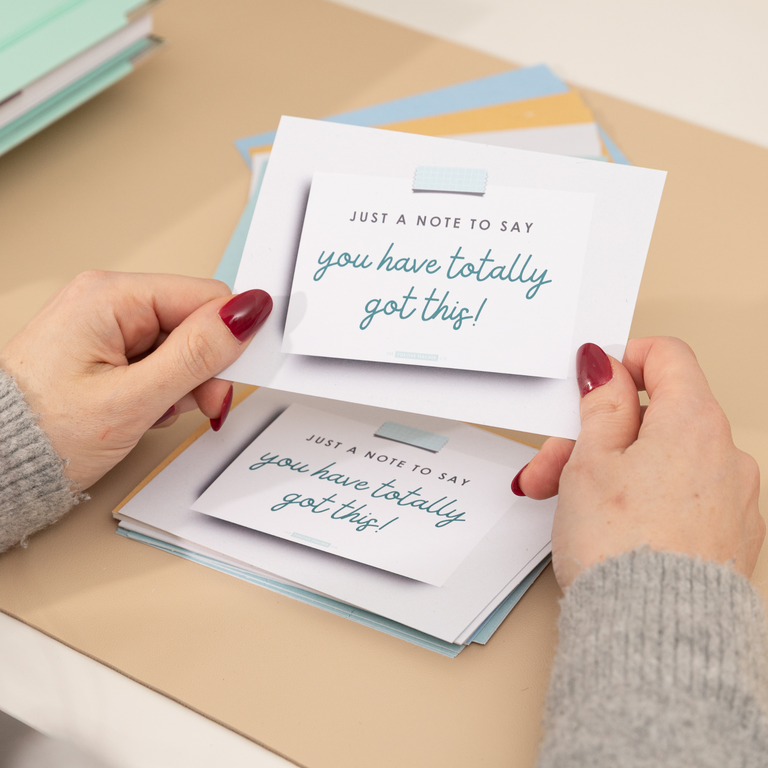 JUST A NOTE TO SAY
you have totally
got this!
JUST A NOTE TO SAY
you have totally
got this!